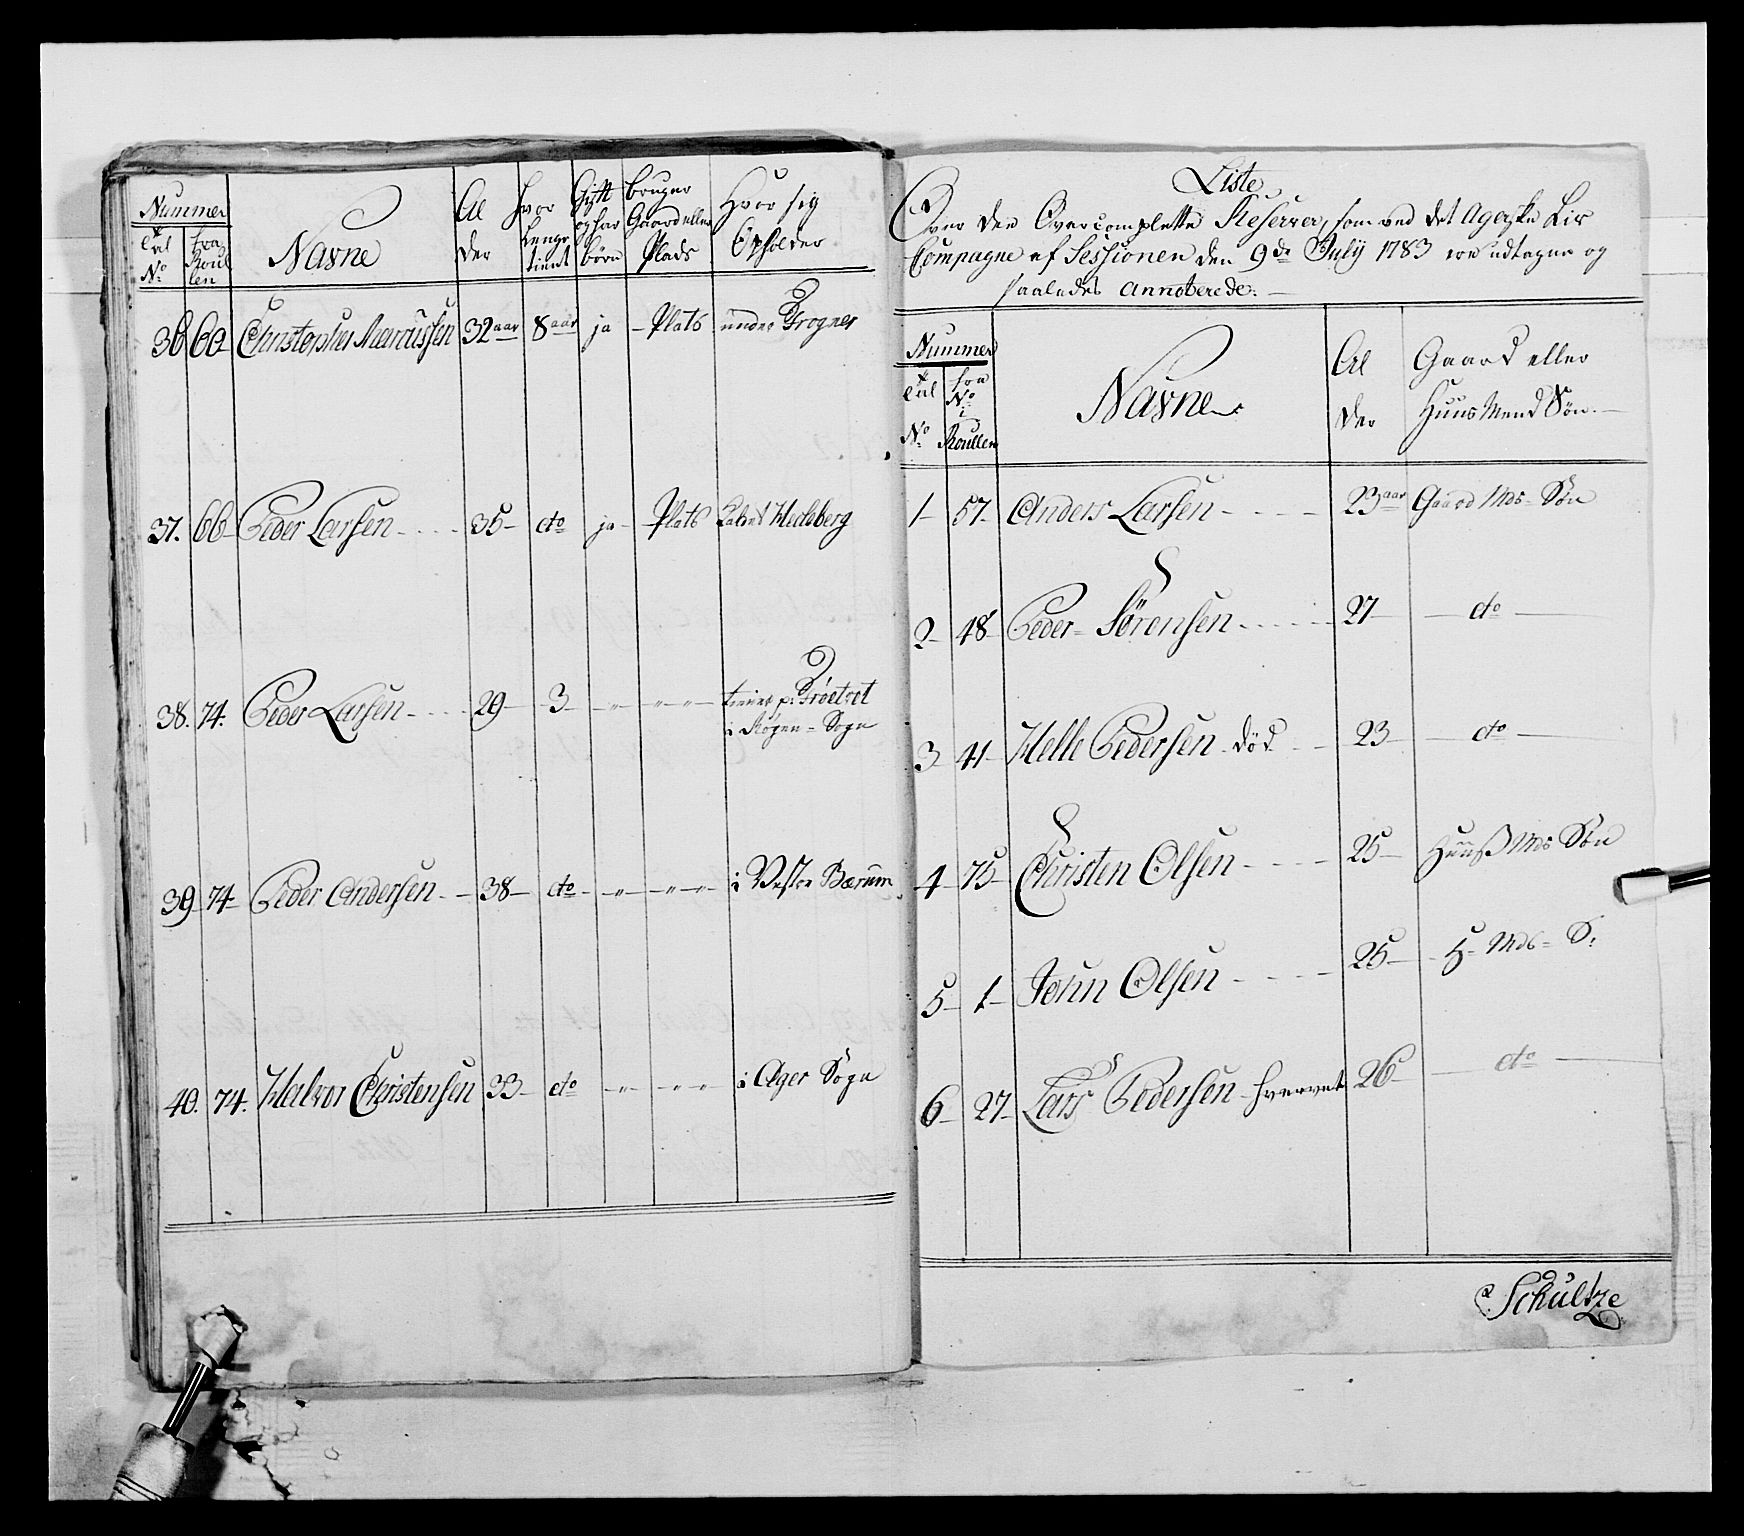 Nummer
Tal No | fra Roullen | Navne | Alder | hvor lenge tient | Gift og har børn | bruger Gaard eller Plads | Hvor sig Opholder
36 60 Christopher Marcussen 32 aar 8 aar ja Plats under Frogner
37. 66 Peder Larsen 35 do ja Plats
38. 74. Peder Larsen 29 3 " " " tiener p:
i Røgen Sogn
39 74 Peder Andersen 38 do " " " i Vestre Bærum
40. 74. Halvor Christensen 33 do " " " i Ager Sogn
Liste
Over den Overcomplette Reserver, som ved det Agerske Liv
Compagne af Sessionen den 9de July 1783 ere udtagne og
saaledes annoterede.
Nummer
Tal No | fra No i Roullen | Navne | Alder | Gaard eller Huus Mend Søn.
1 57 Anders Larsen 23 aar Gaard Mds Søn
2 48 Peder Sørensen 27 do
3 41 Helle Pedersen død 23 do
4 75 Christen Olsen 25 Huuß Mds Søn
5 1 John Olsen 25 H Mds S:
6 27 Lars Pedersen hvervet 26 do
Schultze